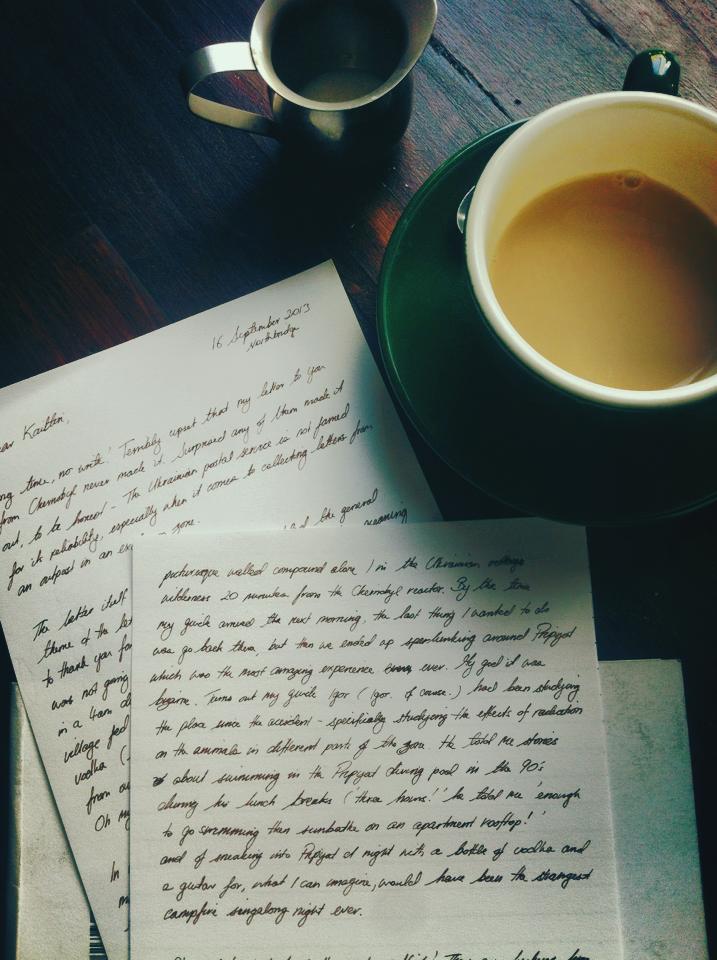 16 September 2013
Northbridge
ear Kaitlin,
ng time, no write! Terribly upset that my letter to you
from Chernobyl never made it. Surprised any of them made it
out, to be honest - The Ukrainian postal service is not famed
for its reliability, especially when it comes to collecting letters from
an outpost in an ex zone.
the general
meaning
The letter itself
theme of the let
to thank you for
was not going
in a 4am d
village fed
vodka (
from ou
Oh my
In
m
picturesque walled compound alone / in the Ukrainian
wilderness 20 minutes from the Chernobyl reactor. By the time
my guide arrived the next morning, the last thing I wanted to do
was go back there, but then we ended up spelunking around Pripyat
which was the most amazing experience ever. My god it was
bizarre. Turns out my guide Igor (Igor, of course.) had been studying
the place since the accident - specifically studying the effects of radiation
on the animals in different parts of the zone. He told me stories
about swimming in the Pripyat diving pool in the 90's
during his lunch breaks ('three hours!' he told me 'enough
to go swimming then sunbathe on an apartment rooftop!'
and of sneaking into Pripyat at night with a bottle of vodka and
a guitar for, what I can imagine, would have been the strangest
campfire singalong night ever.